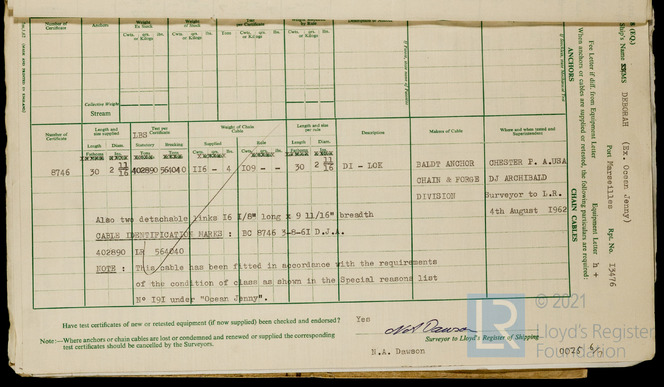 (EQ)
Ship's Name SSMS DEBORAH (Ex. Ocean Jenny)
Port Marseilles Rpt. No. 13476
Fee Letter if diff. from Equipment Letter
Equipment Letter h +
When anchors or cables are supplied or retested, the following particulars are required:
ANCHORS
CHAIN CABLES
Number of Certificate
Anchors
Weight Ex Stock
Weight of Stock
Test per Certificate
Cwts. qrs. lbs. or Kilogs
Collective Weight
Stream
Number of Certificate
Length and size supplied
LBS
Test per Certificate
Weight of Chain Cable
Length and size per rule
Description
Makers of Cable
Where and when tested and Superintendent
Length Diam. Statutory Breaking Supplied Rule Length Diam.
Fathoms Ins. Tons Tons Cwts. qrs. lbs. or Kilogs Cwts. qrs. lbs. or Kilogs Fathoms Ins.
8746 30 2 11/16 402890 564040 116 - 4 109 - - 30 2 11/16 DI - LOK BALDT ANCHOR CHESTER P. A.USA
CHAIN & FORGE DJ ARCHIBALD
DIVISION Surveyor to L.R.
4th August 1962
Also two detachable links 16 1/8" long x 9 11/16" breadth
CABLE IDENTIFICATION MARKS : BC 8746 3-8-61 D.J.A.
402890 LR 564040
NOTE : This cable has been fitted in accordance with the requirements
of the condition of class as shown in the Special reasons list
N° 191 under "Ocean Jenny".
Have test certificates of new or retested equipment (if now supplied) been checked and endorsed? Yes
Note:—Where anchors or chain cables are lost or condemned and renewed or supplied the corresponding
test certificates should be cancelled by the Surveyors.
N.A. Dawson
Surveyor to Lloyd's Register of Shipping
N.A. Dawson
0025
LR
© 2021
Lloyd's Register
Foundation